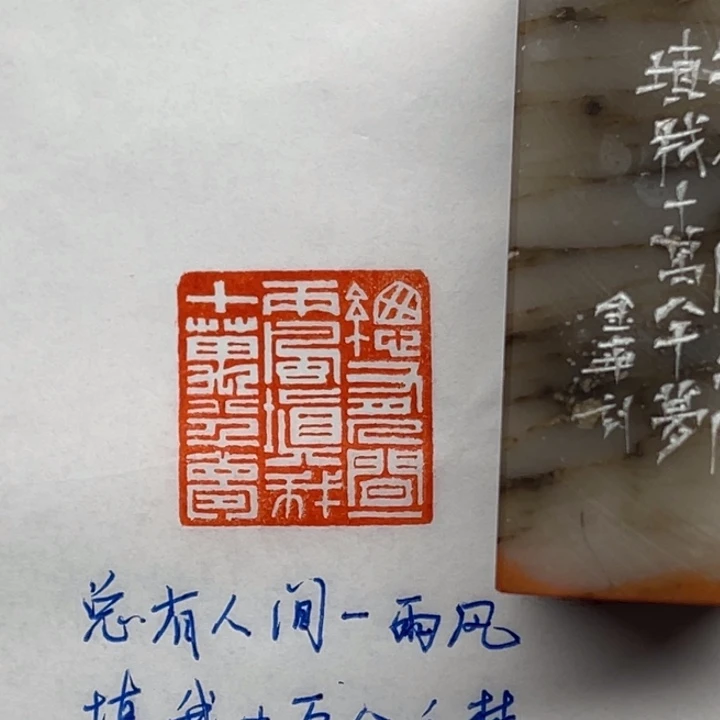 總有人間一
雨風填我
十萬八千夢
填我十萬八千夢
金華
总有人间一雨风
填我十万八千梦